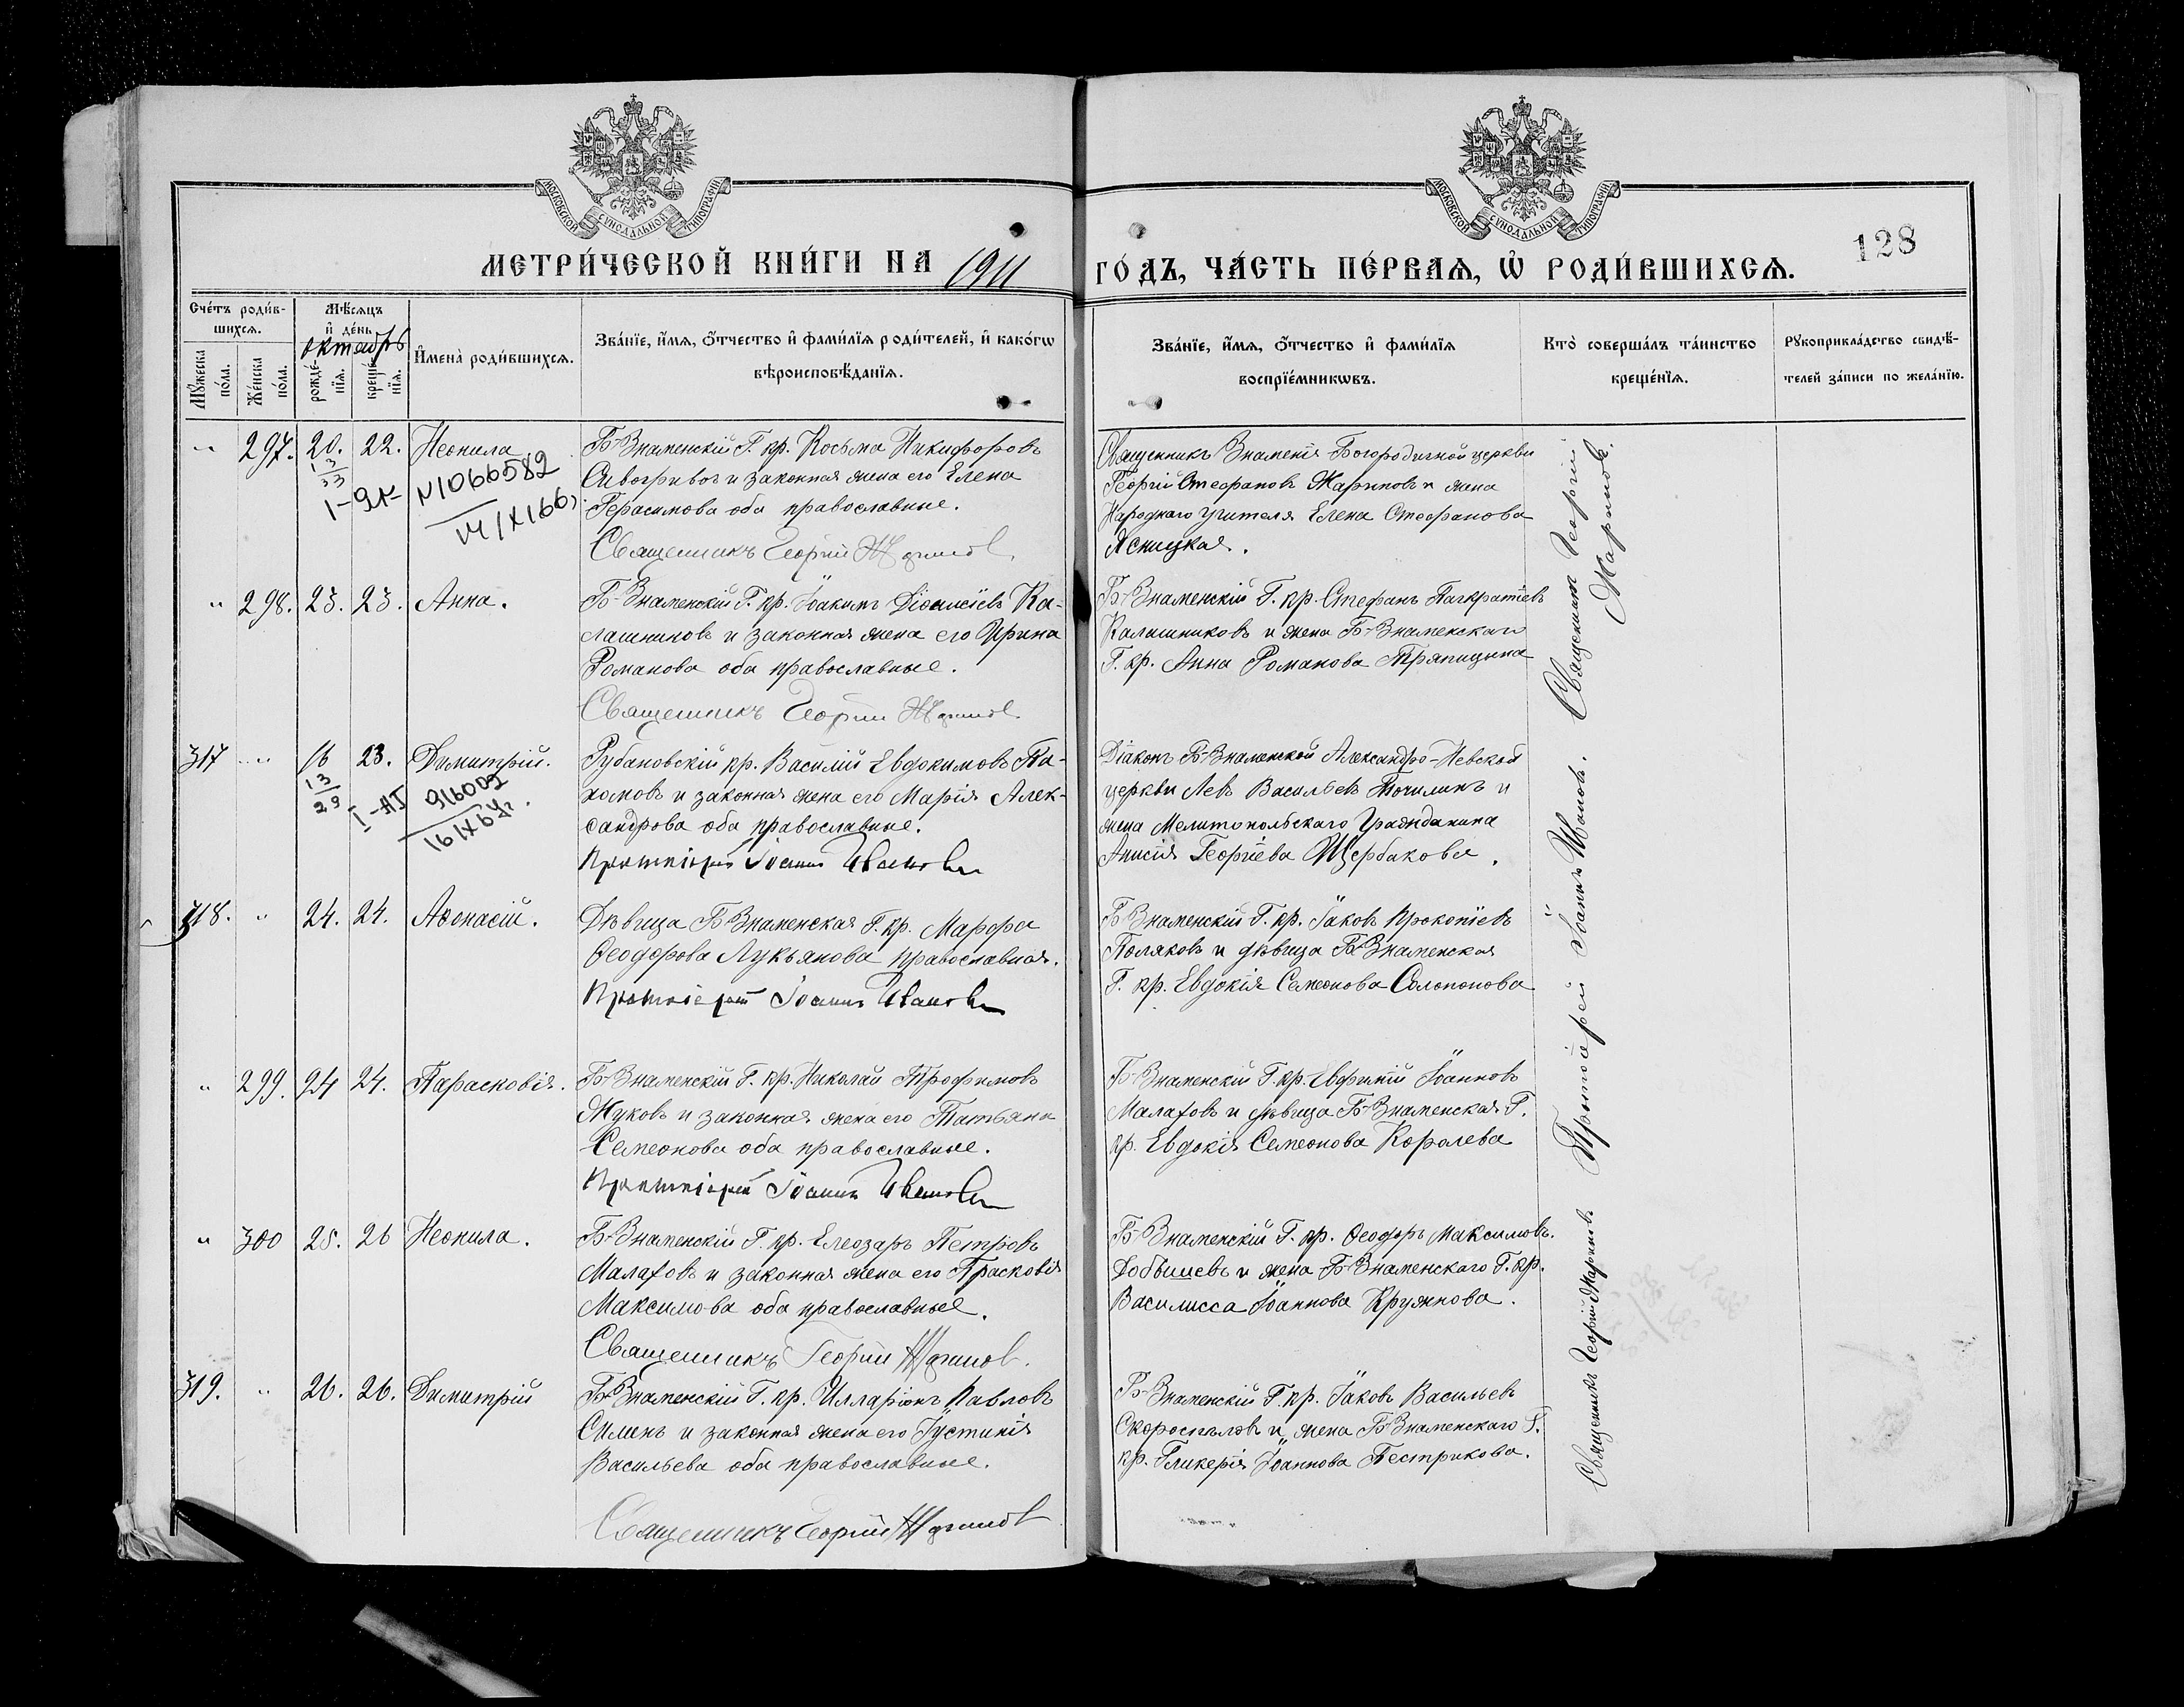 МОСКОВСКОЙ СУНОДАЛЬНОЙ ТИПОГРАФІИ
МОСКОВСКОЙ СУНОДАЛЬНОЙ ТИПОГРАФІИ
МЕТРИ́ЧЕСКОЙ КНИ́ГИ НА 1911 ГО́ДЪ, ЧА́СТЬ ПЕ́РВАЯ, Ѡ РОДИ́ВШИХСЯ.
128
Счетъ родившихся.
Мужеска пола.
Женска пола.
Мѣсяцъ и день
октябрь
рожденія.
крещенія.
Имена родившихся.
Званіе, имя, отчество и фамилія родителей, и какогѡ
вѣроисповѣданія.
Званіе, имя, отчество и фамилія
воспріемниковъ.
Кто совершалъ таинство
крещенія.
Рукоприкладство свидѣ-
телей записи по желанію.
" 297. 20. 22. Неонила
13
I-ЯК N1066582
Б-Знаменскій Г. кр. Косьма Никифоровъ
Сивогривов и законная жена его Елена
Герасимова оба православные.
Священникъ Георгій Жариновъ
Священникъ Знаменія Богородичной церкви
Георгій Стефановъ Жариновъ и жена
Народнаго учителя Елена Стефанова
Ясницкая.
Священникъ Георгій
Жариновъ.
" 298. 23. 23. Анна.
Б-Знаменскій Г. кр. Іоакимъ Діонисіевъ Ка-
лашниковъ и законная жена его Ирина
Романова оба православные.
Священникъ Георгій Жариновъ
Б-Знаменскій Г. кр. Стефанъ Панкратіевъ
Калашниковъ и жена Б-Знаменскаго
Г. кр. Анна Романова Тряпицына
317 " 16 23. Димитрій.
13
29
I-АГ 916002
16 IX 67г.
Рубановскій кр. Василій Евдокимовъ Па-
хомовъ и законная жена его Марія Алек-
сандрова оба православные.
Протоіерей Іоаннъ Ивановъ
Діаконъ Б-Знаменской Александро-Невской
церкви Левъ Васильевъ Точилинъ и
жена Мелитопольскаго Гражданина
Анисія Георгіева Щербакова.
Протоіерей Іоаннъ Ивановъ.
318. " 24. 24. Аѳонасій.
Дѣвица Б-Знаменская Г. кр. Марфа
Ѳеодорова Лукьянова православная.
Протоіерей Іоаннъ Ивановъ
Б-Знаменскій Г. кр. Іаковъ Прокопіевъ
Поляковъ и дѣвица Б-Знаменская
Г. кр. Евдокія Семеонова Солопонова
" 299. 24 24. Парасковія.
Б-Знаменскій Г. кр. Николай Трофимовъ
Жуковъ и законная жена его Татьяна
Семеонова оба православные.
Протоіерей Іоаннъ Ивановъ
Б-Знаменскій Г. кр. Евфимій Іоанновъ
Малаховъ и дѣвица Б-Знаменская Г.
кр. Евдокія Семеонова Королева
" 300 25. 26 Неонила.
Б-Знаменскій Г. кр. Елеазаръ Петровъ
Малаховъ и законная жена его Прасковія
Максимова оба православные.
Священникъ Георгій Жариновъ.
Б-Знаменскій Г. кр. Ѳеодоръ Максимовъ.
Добышевъ и жена Б-Знаменскаго Г. кр.
Василисса Іоаннова Кружнова.
Священникъ Георгій Жариновъ
319. " 26. 26. Димитрій
Б-Знаменскій Г. кр. Илларіонъ Павловъ
Силинъ и законная жена его Іустинія
Васильева оба православные.
Священникъ Георгій Жариновъ
Б-Знаменскій Г. кр. Іаковъ Васильевъ
Скороспѣловъ и жена Б-Знаменскаго Г.
кр. Гликерія Іоаннова Пестрикова.